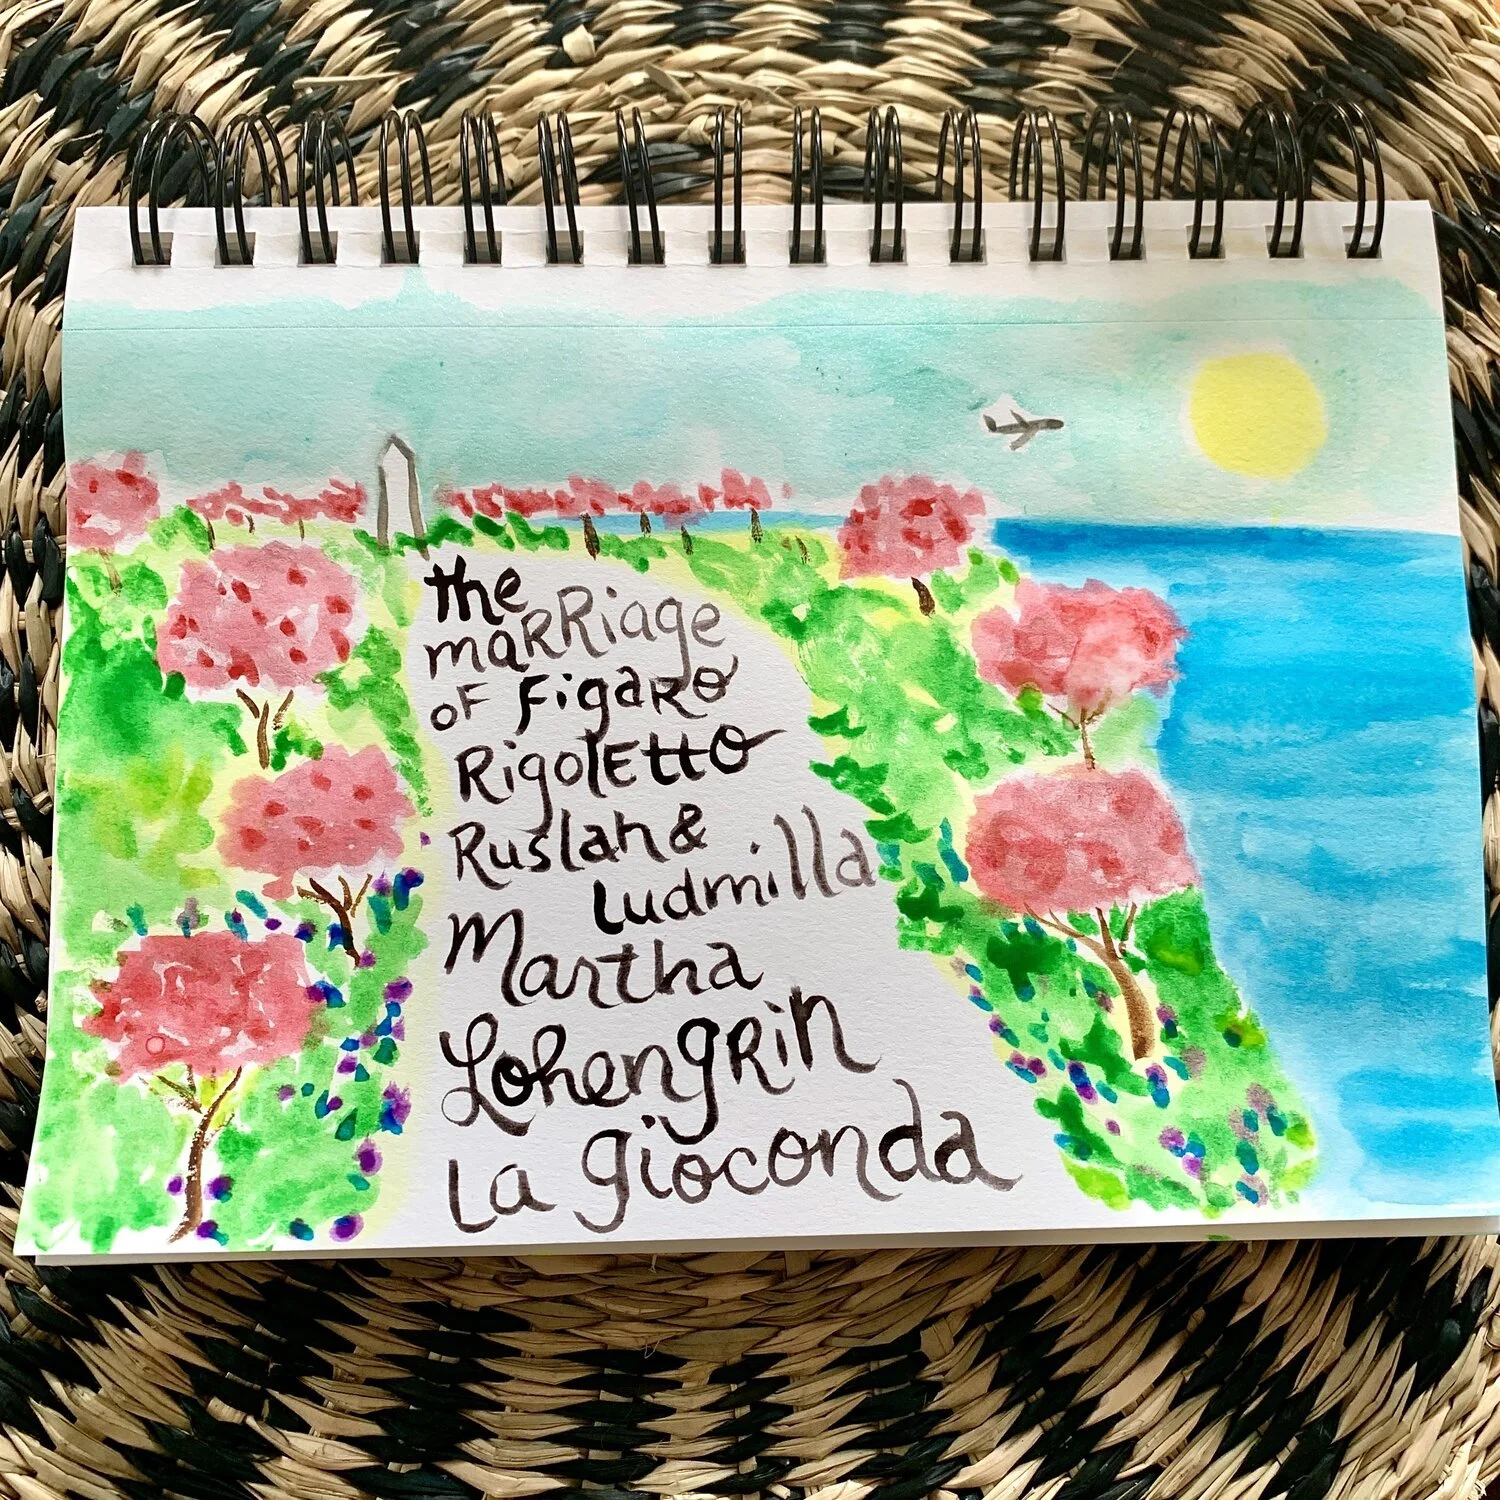 the
maRRiage
of Figaro
Rigoletto
Ruslan &
Ludmilla
Martha
Lohengrin
La gioconda